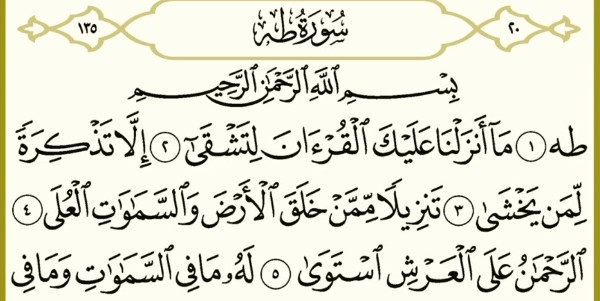 ١٣٥ سُورَةُ طه ٢٠
بِسْمِ ٱللَّهِ ٱلرَّحْمَٰنِ ٱلرَّحِيمِ
طه ١ مَآ أَنزَلْنَا عَلَيْكَ ٱلْقُرْءَانَ لِتَشْقَىٰٓ ٢ إِلَّا تَذْكِرَةً
لِّمَن يَخْشَىٰ ٣ تَنزِيلًا مِّمَّنْ خَلَقَ ٱلْأَرْضَ وَٱلسَّمَٰوَٰتِ ٱلْعُلَى ٤
ٱلرَّحْمَٰنُ عَلَى ٱلْعَرْشِ ٱسْتَوَىٰ ٥ لَهُۥ مَا فِى ٱلسَّمَٰوَٰتِ وَمَا فِى